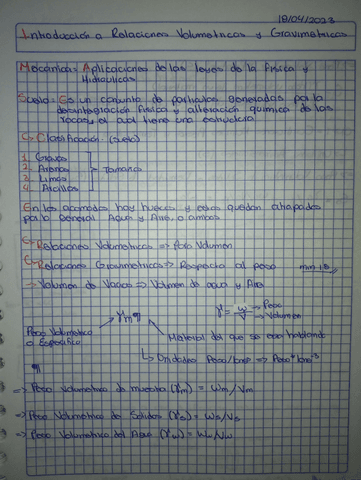 18/04/2023
Introducción a Relaciones Volumetricas y Gravimetricas
Mecánica= Aplicaciones de las leyes de la fisica y
Hidraulicas
Suelo= Es un conjunto de particulas generadas por la
desintegración fisica y alteración quimica de las
rocas, el cual tiene una estructura
Clasificación (suelo)
1. Gravas
2. Arenas
3. Limos
4. Arcillas
Tamaños
En los acomodos hay huecos y estos quedan atrapados
por lo general Agua y Aire, o ambos
Relaciones Volumetricas => Peso Volumen
Relaciones Gravimetricas => Respecto al peso
-> Volumen de Vacios => Volumen de agua y Aire
γm
γ = W/V
-> Peso
-> Volumen
Peso Volumetrico
o Especifico
Material del que se esta hablando
Unidades Peso/
=> Peso Volumetrico de muestra (γm) = Wm/Vm
=> Peso Volumetrico de Solidos (γs) = Ws/Vs
=> Peso Volumetrico del Agua (γw) = Ww/Vw